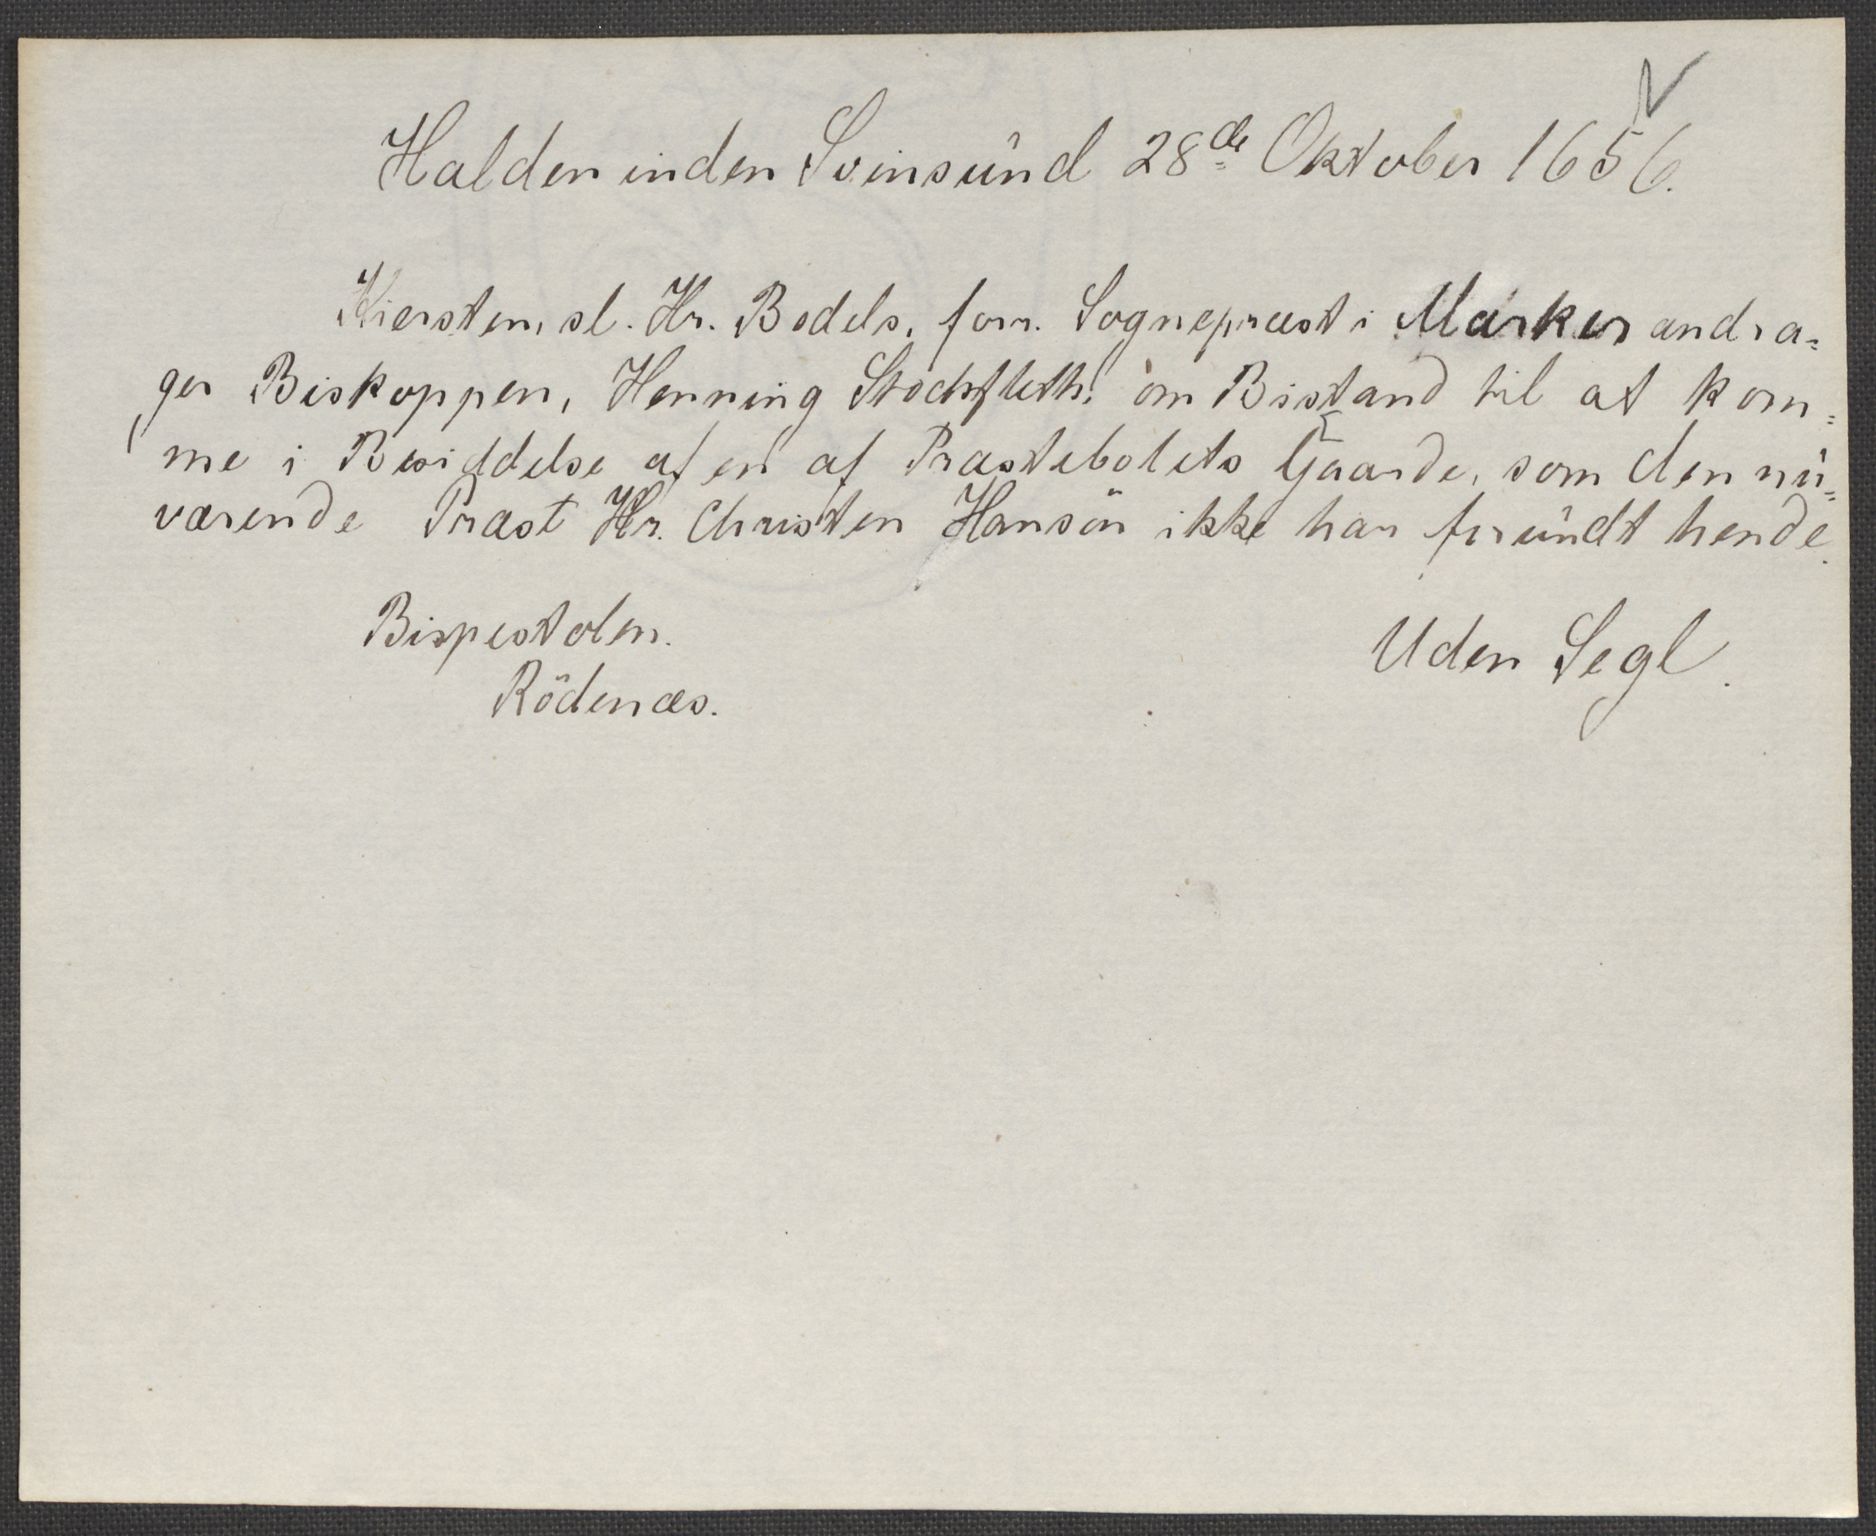 Halden inden Svinsund 28de Oktober 1656.
Kiersten, sl. Hr. Bodels, forr. Sognepræst i Marker andra=
ger Biskoppen, Henning Stochfleth, om Bistand til at kom=
me i Besiddelse af en af Præstebolets Gaarde, som den nu=
værende Præst Hr. Christen Hansön ikke har friundt hende.
Bispestolen.
Uden Segl.
Rödenæs.